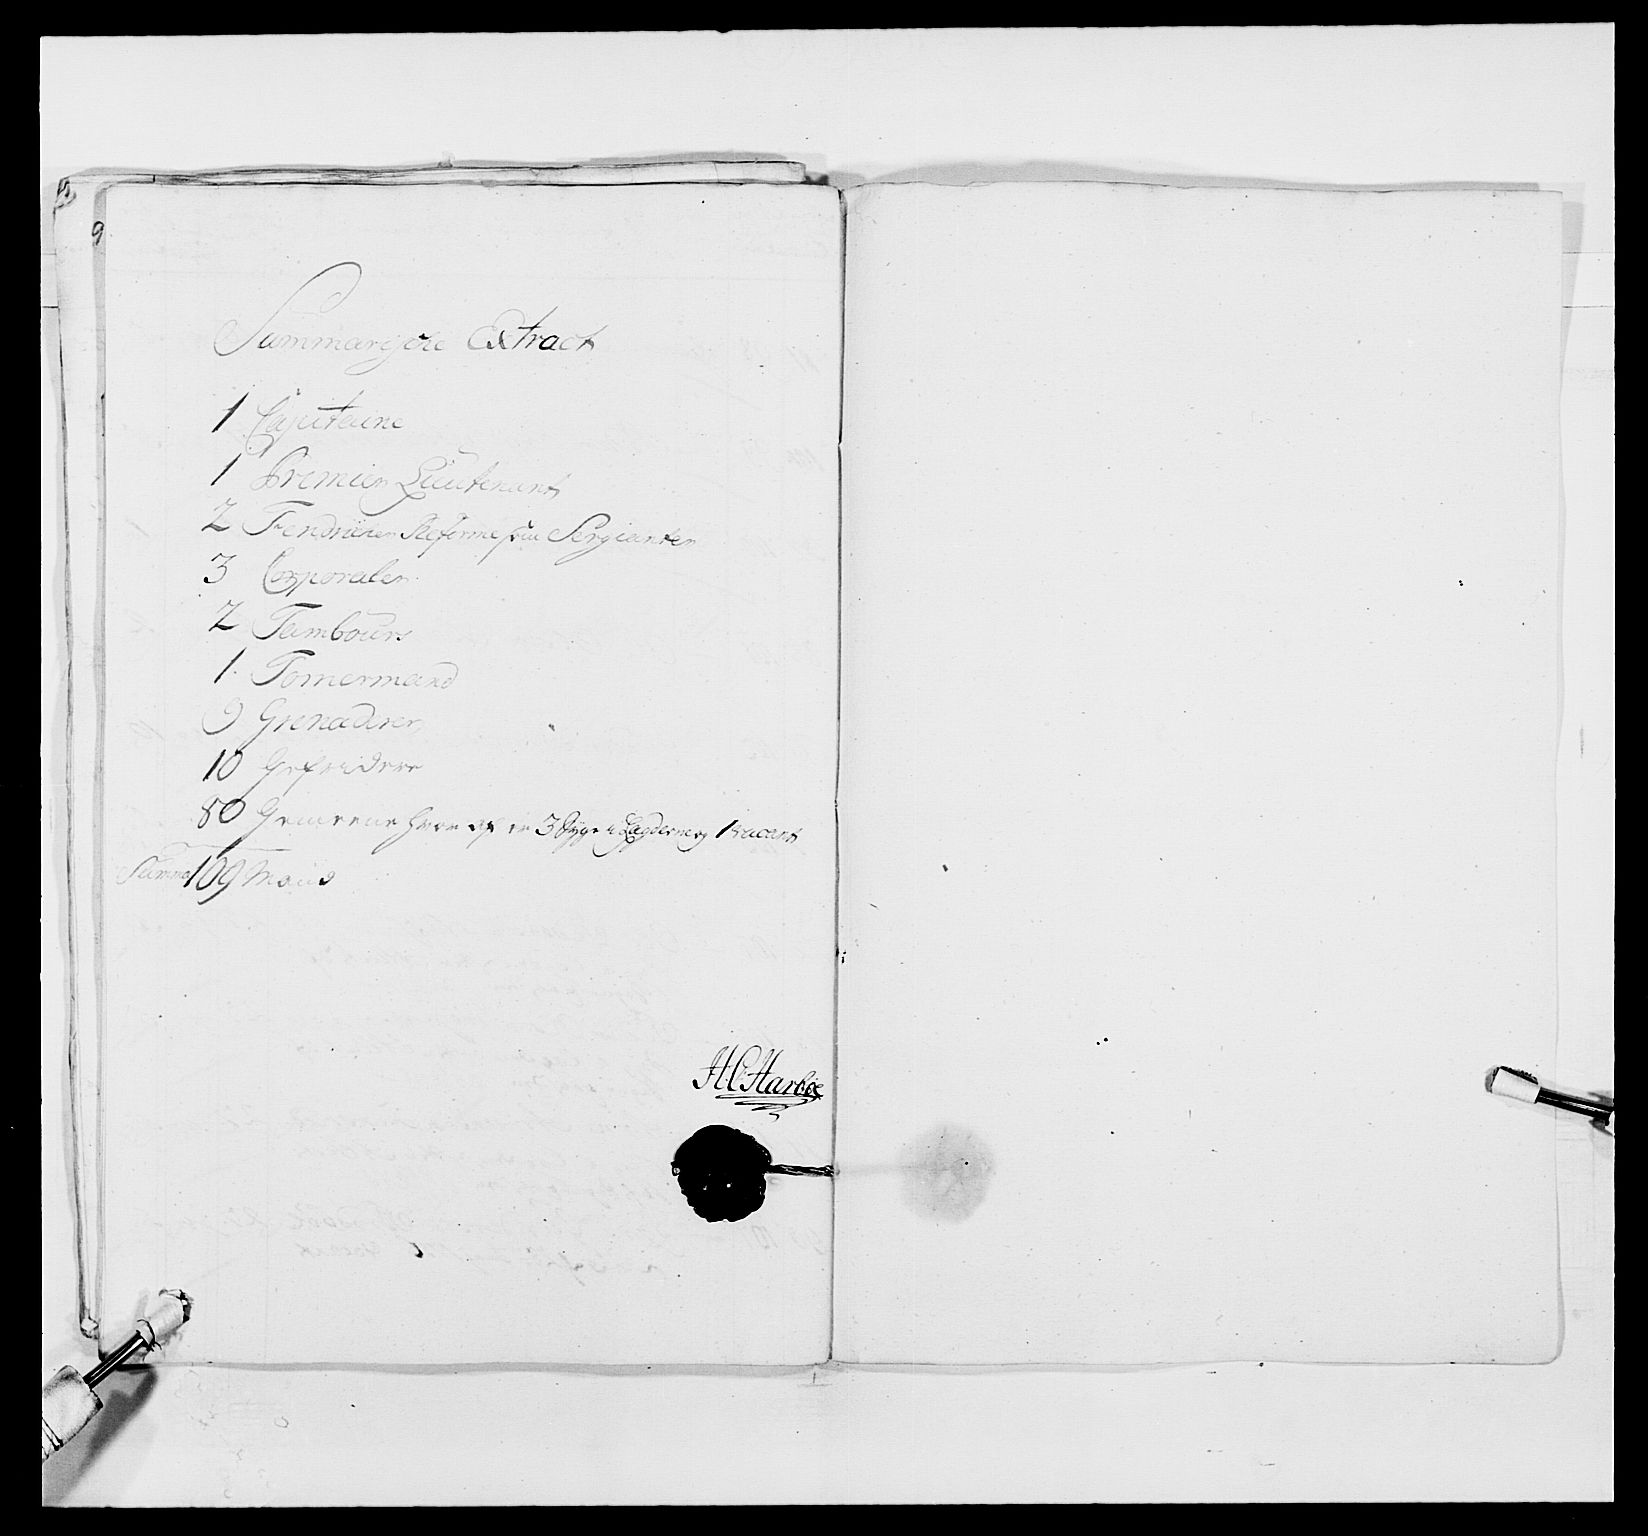 Summarische Extract
1 Capitaine
1 Premier Lieutenant
2 Fendricher Reforme som Sergianter
3 Corporaler
2 Tambours
1. Tømermand
9 Grenaderer
10 Gefridere
80 Gemeene hvor af er 3 Syge i Lægderne og 1 vacant
Summa 109 Mand
H C Harboe